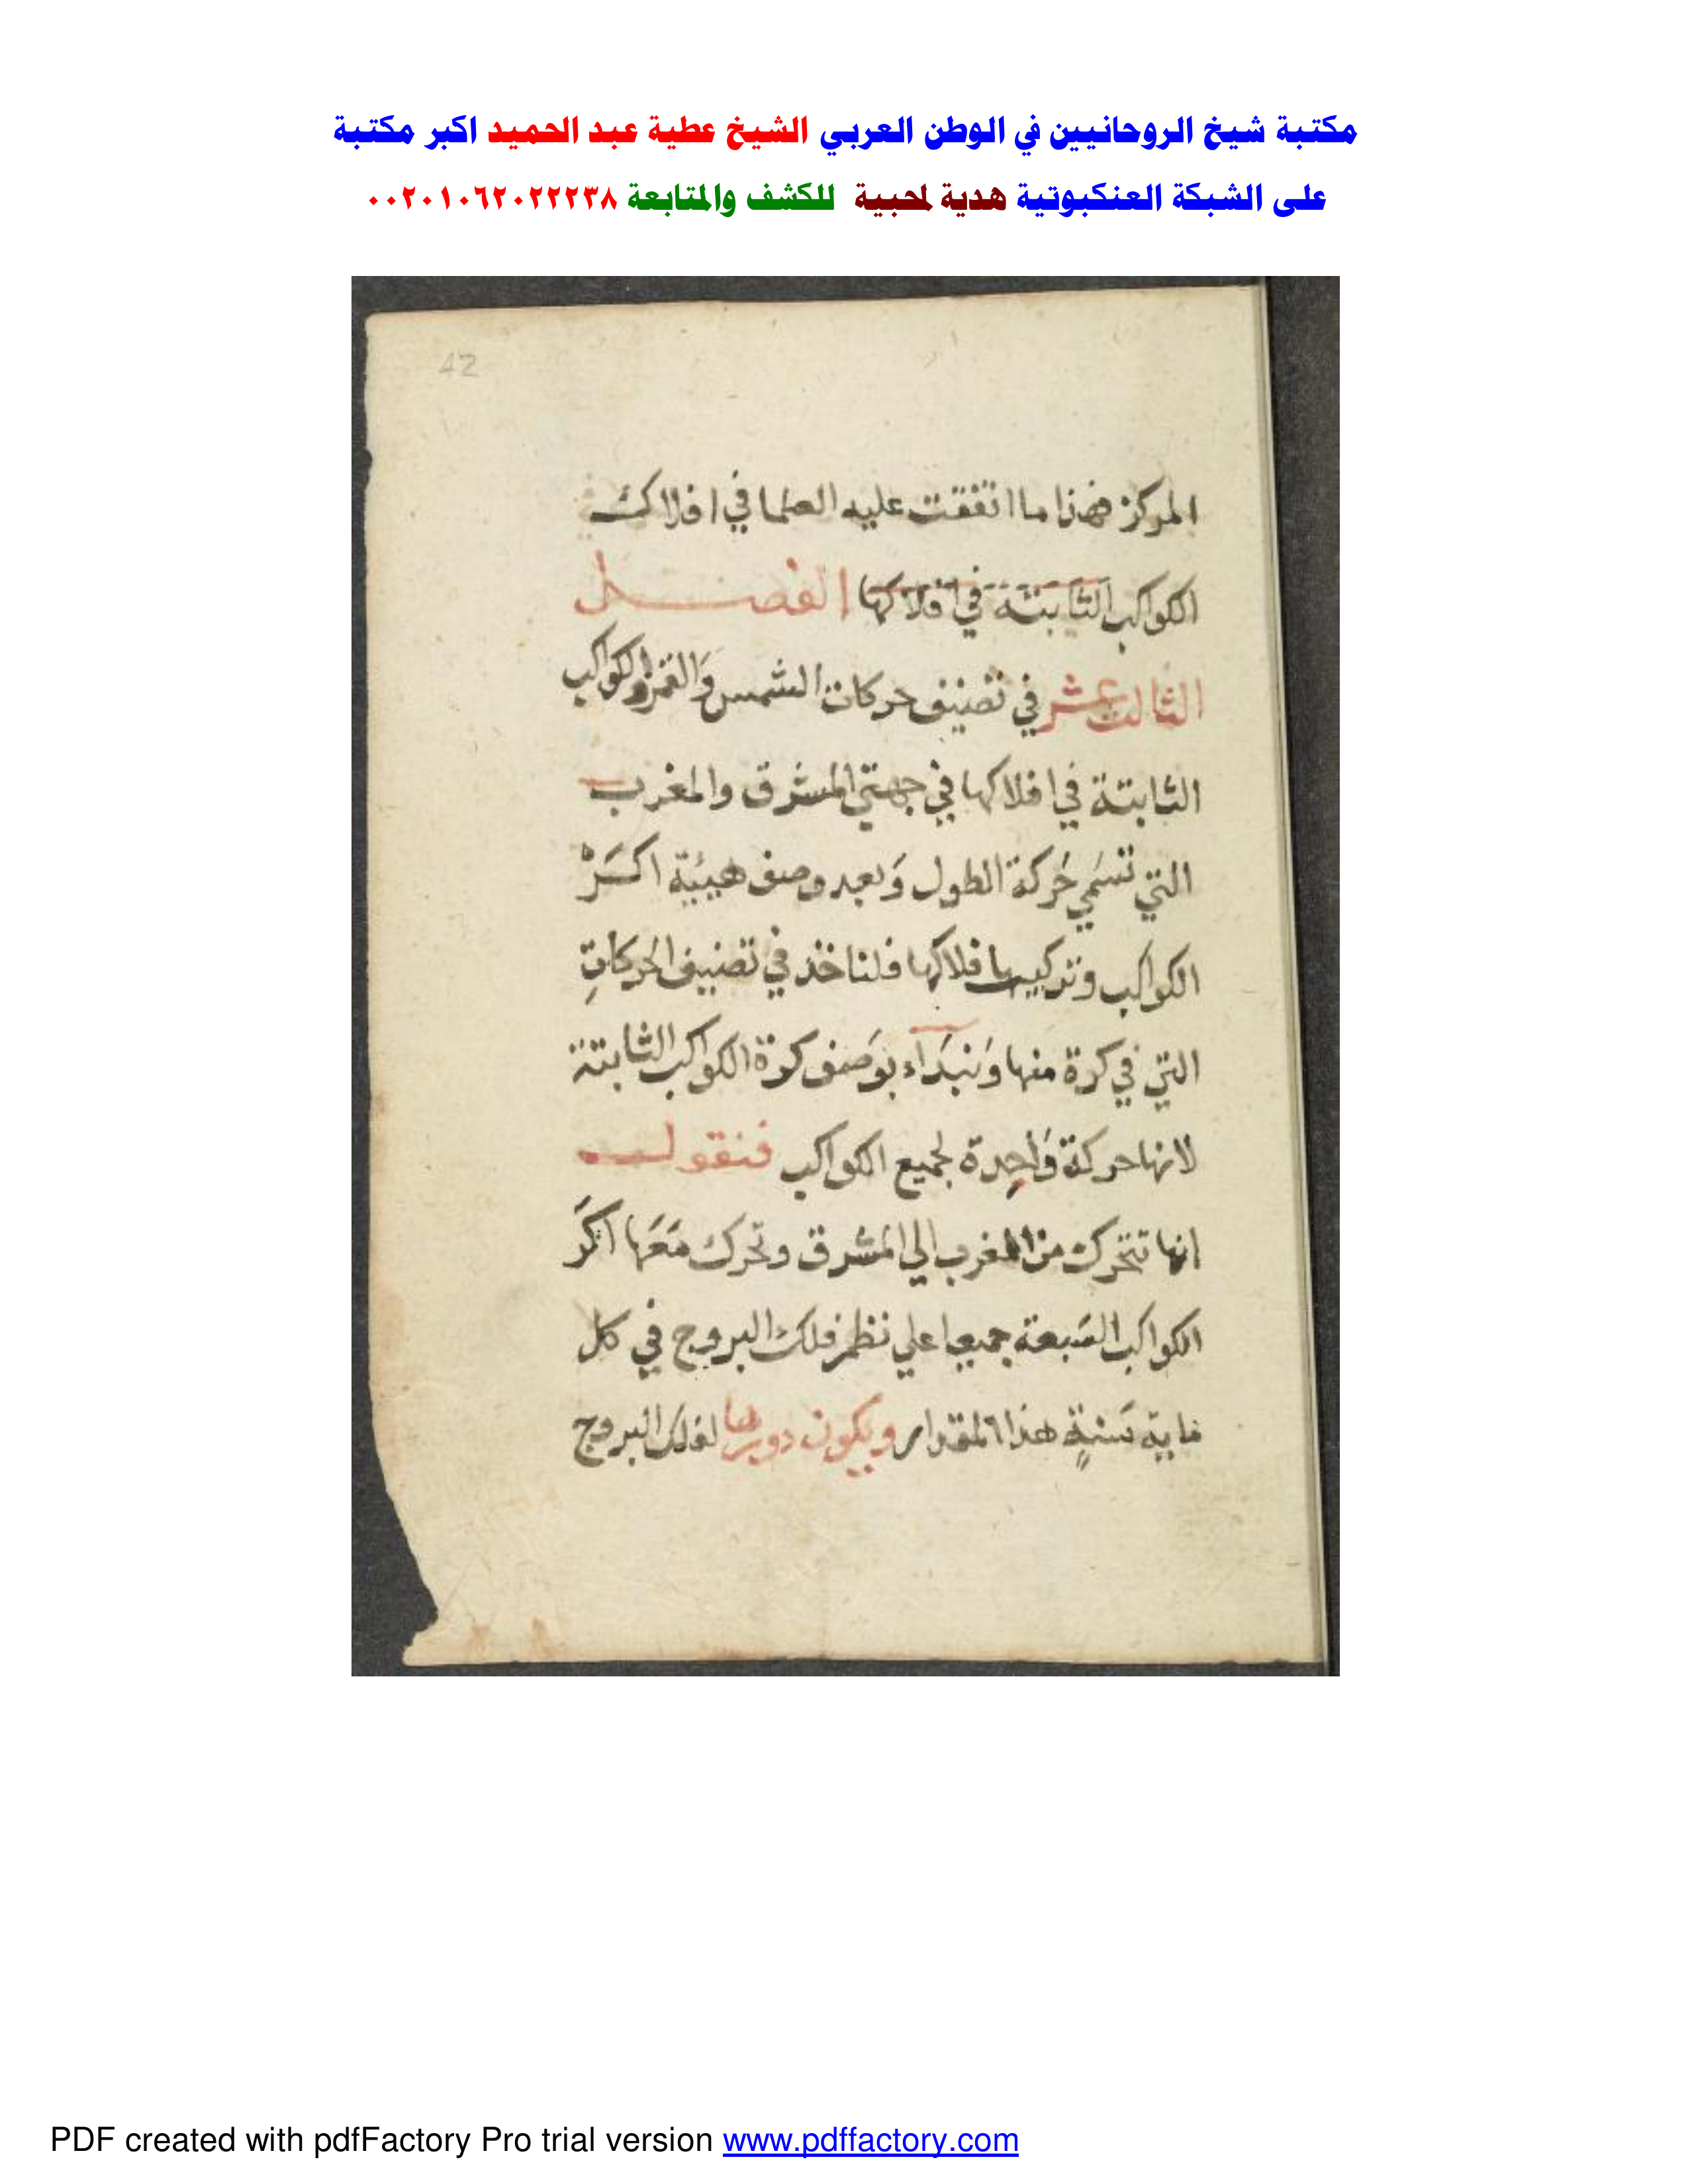 مكتبة شيخ الروحانيين في الوطن العربي الشيخ عطية عبد الحميد اكبر مكتبة
على الشبكة العنكبوتية هدية لمحبية للكشف والمتابعة ٠٠٢٠١٠٦٢٠٢٢٢٣٨
42
المركز فهذا ما اتفقت عليه العلما في افلاك
الكواكب الثابتة في افلاكها الفصل
الثالث عشر في تصنيف حركات الشمس والقمر والكواكب
الثابتة في افلاكها في جهتي المشرق والمغرب
التي تسمي حركة الطول وبعد وصف هيئة اكر
الكواكب وتركيب افلاكها فلناخذ في تصنيف الحركات
التي في كرة منها ونبداء بوصف كرة الكواكب الثابتة
لانها حركة واحدة لجميع الكواكب فنقول
انها تتحرك من المغرب الي المشرق وتحرك معها اكر
الكواكب السبعة جميعا علي نظر فلك البروج في كل
ماية سنة هذا المقدار ويكون دورها لفلك البروج
PDF created with pdfFactory Pro trial version www.pdffactory.com